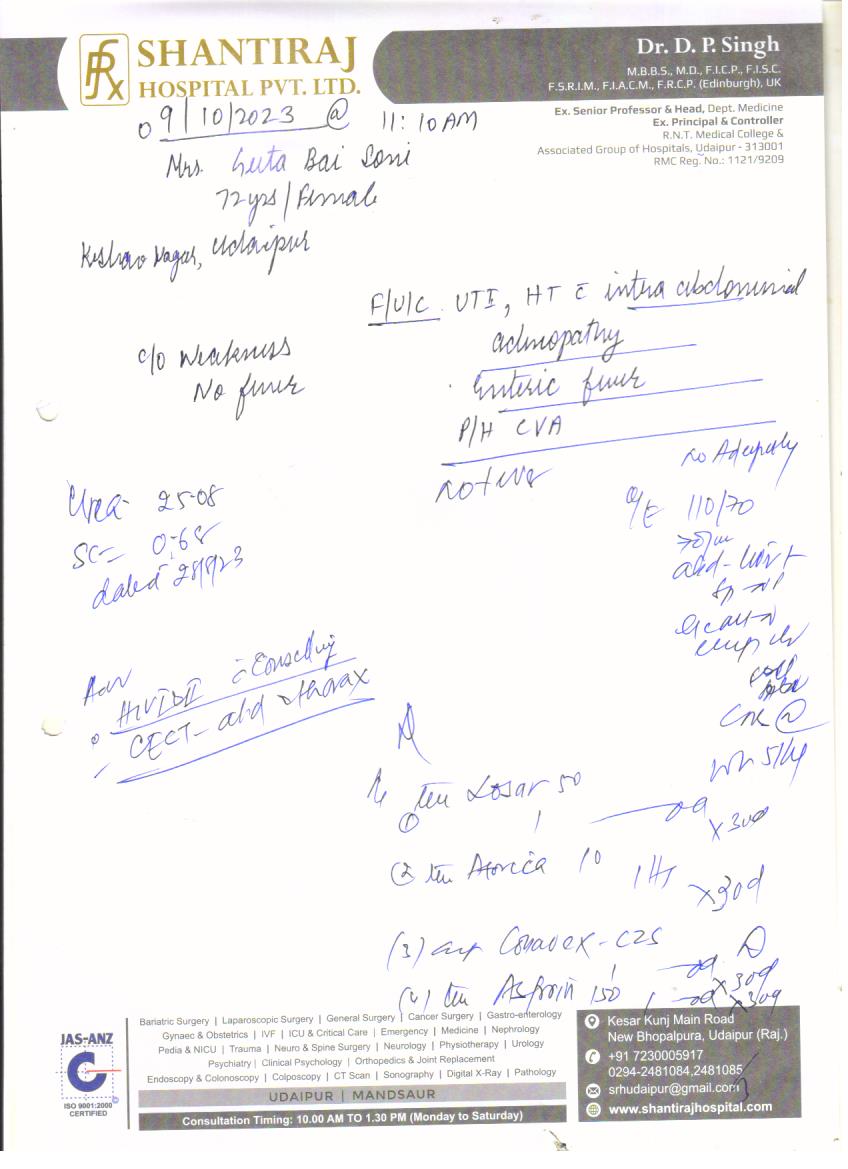 SHANTIRAJ
HOSPITAL PVT. LTD.
Dr. D. P. Singh
M.B.B.S., M.D., F.I.C.P., F.I.S.C.
F.S.R.I.M., F.I.A.C.M., F.R.C.P. (Edinburgh), UK
Ex. Senior Professor & Head, Dept. Medicine
Ex. Principal & Controller
R.N.T. Medical College &
Associated Group of Hospitals, Udaipur - 313001
RMC Reg. No.: 1121/9209
09/10/2023 @ 11:10 AM
Mrs. Bai Soni
72yrs/Female
Keshav Nagar, Udaipur
F/U/C UTI, HT c intra abdominial
adinopathy
Enteric fever
P/H CVA
c/o Weakness
No fever
no fever
no Adenopathy
O/E 110/70
Urea- 25.08
SC- 0.68
dated 28/8/23
Adv
c Conselling
CECT- abd thorax
① Losar 50
1 od x30d
② Atorica 10
1 HS x30d
(3) cap C25
1 od x30d
(4) Asprin 150
1 od x30d
Bariatric Surgery | Laparoscopic Surgery | General Surgery | Cancer Surgery | Gastro-enterology
Gynaec & Obstetrics | IVF | ICU & Critical Care | Emergency | Medicine | Nephrology
Pedia & NICU | Trauma | Neuro & Spine Surgery | Neurology | Physiotherapy | Urology
Psychiatry | Clinical Psychology | Orthopedics & Joint Replacement
Endoscopy & Colonoscopy | Colposcopy | CT Scan | Sonography | Digital X-Ray | Pathology
UDAIPUR | MANDSAUR
Consultation Timing: 10.00 AM TO 1.30 PM (Monday to Saturday)
JAS-ANZ
ISO 9001:2000
CERTIFIED
Kesar Kunj Main Road
New Bhopalpura, Udaipur (Raj.)
+91 7230005917
0294-2481084,2481085
srhudaipur@gmail.com
www.shantirajhospital.com